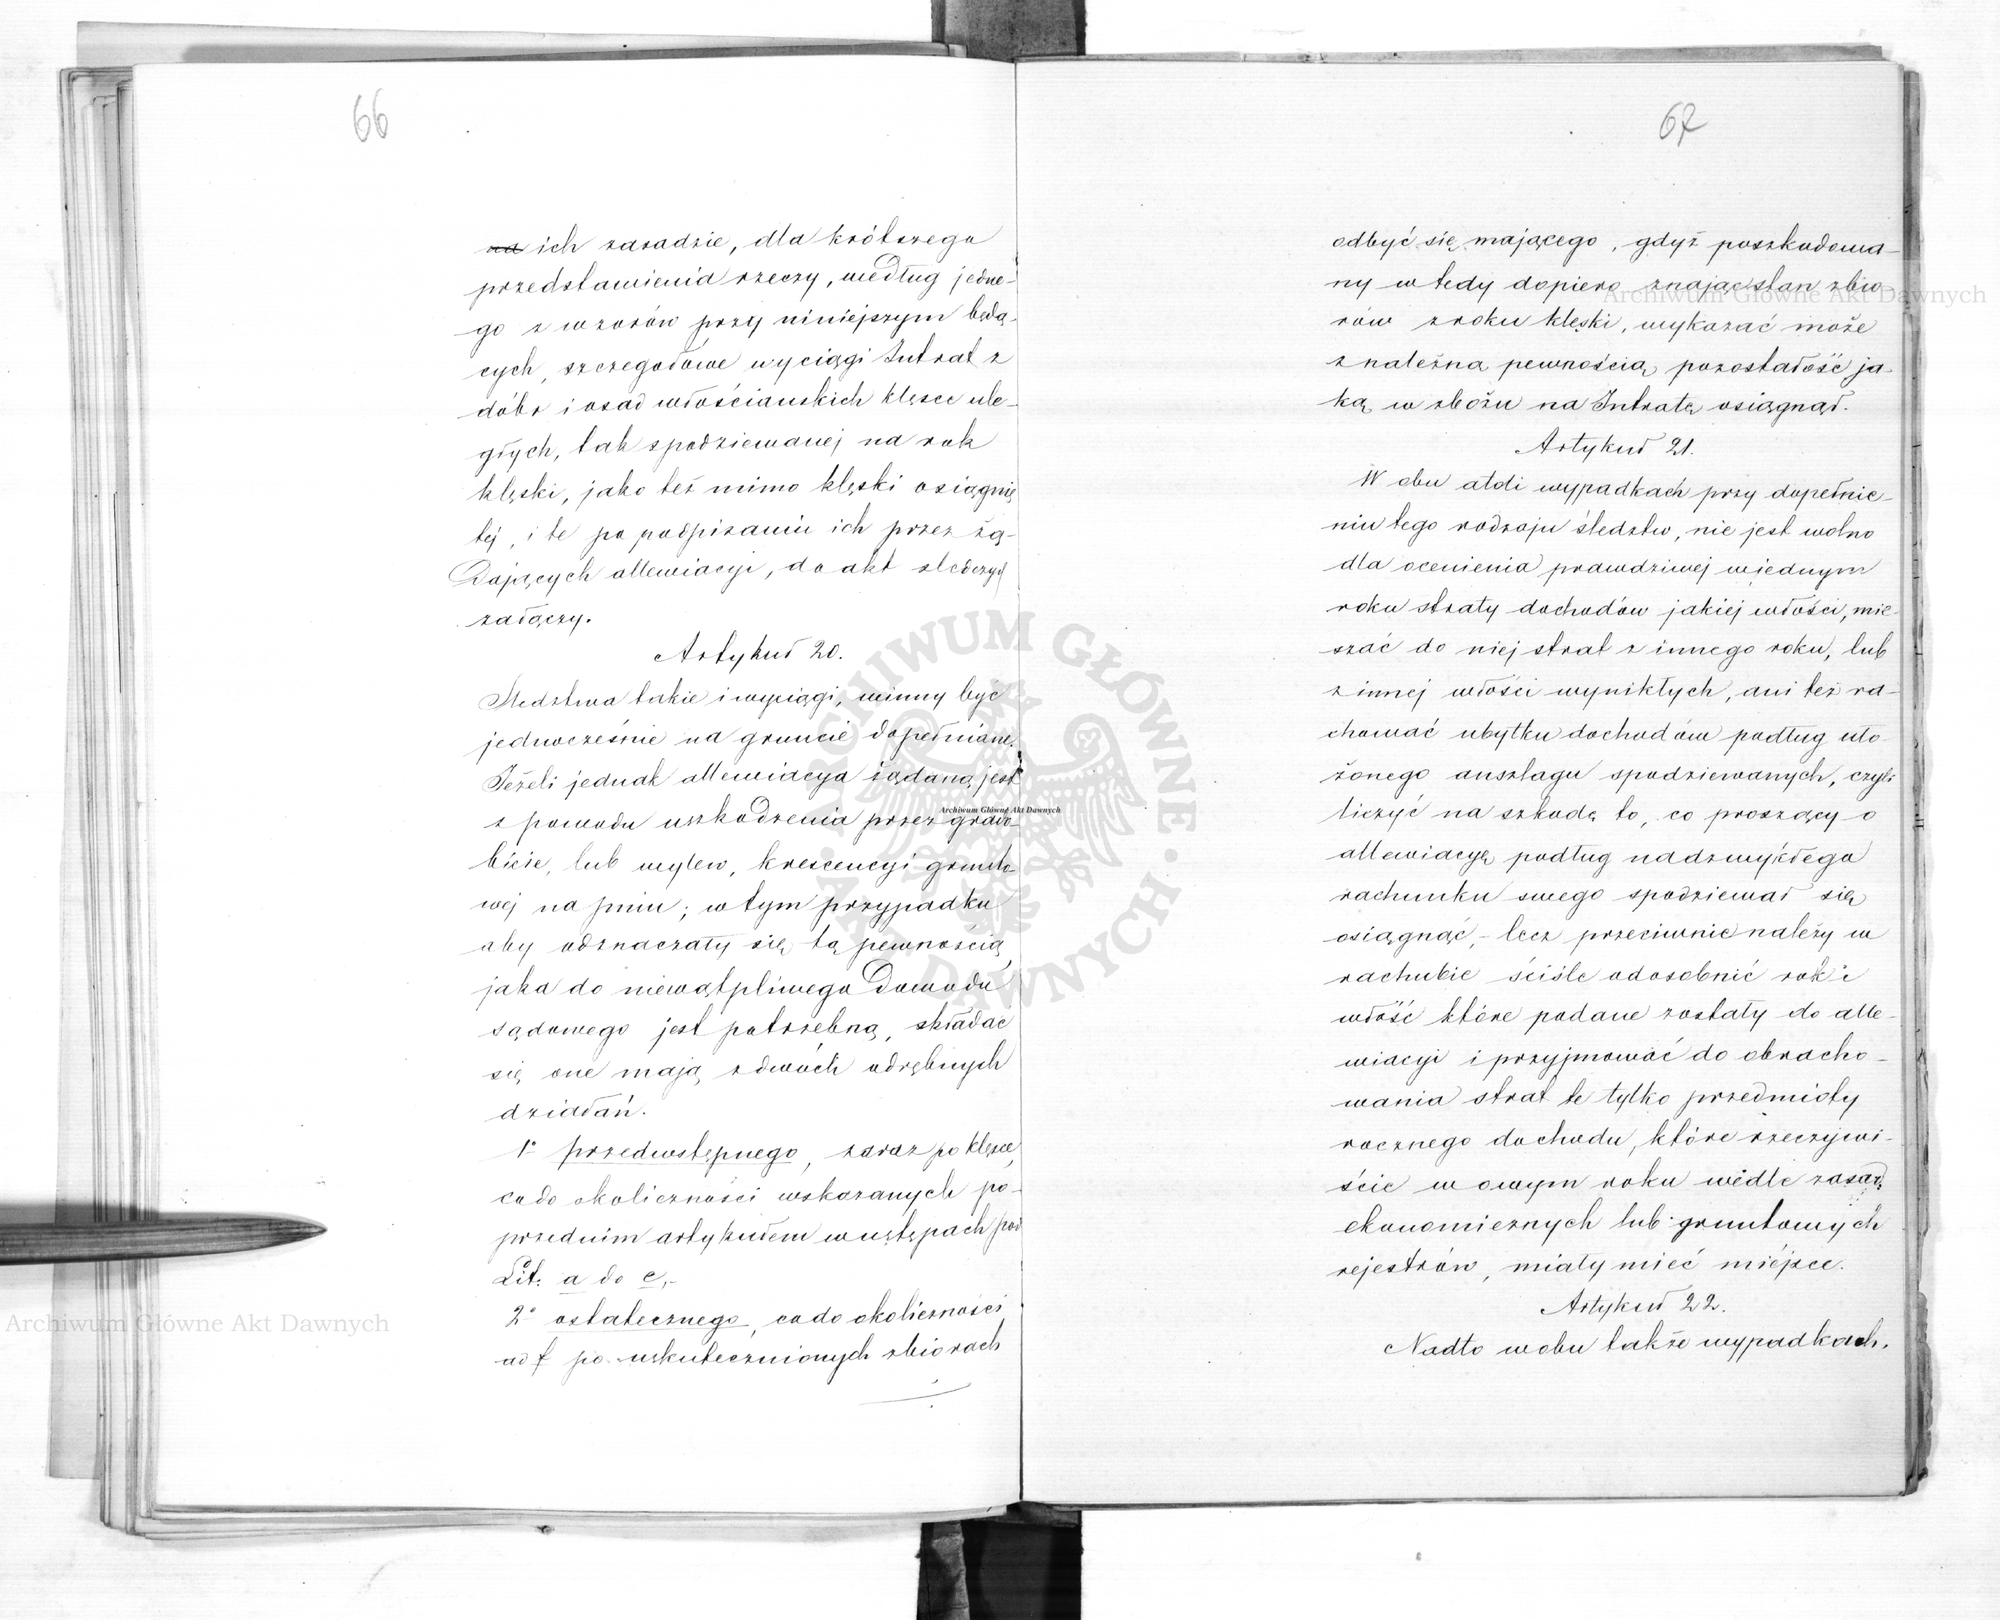 66
na ich zasadzie, dla krótszego
przedstawienia rzeczy, według jedne-
go z wzorów przy niniejszym będą-
cych, szczegółowe wyciągi Intrat z
dóbr i osad włościańskich klęsce ule-
głych, tak spodziewanej na rok
klęski, jako też mimo klęski osiągnię
tej, i te po podpisaniu ich przez żą-
dających allewiacyi, do akt śledczych
załączy.
Artykuł 20.
Śledztwa takie i wyciągi, winny być
jednocześnie na gruncie dopełniane.
Jeżeli jednak allewiacya żądaną jest
z powodu uszkodzenia przez grado-
bicie, lub wylew, krescencyi grunto-
wej na pniu; w tym przypadku
aby odznaczały się tą pewnością
jaka do niewątpliwego Dowodu
sądowego jest potrzebną, składać
się one mają z dwóch odrębnych
działań.
1° przedwstępnego, zaraz po klęsce,
co do okoliczności wskazanych po-
przednim artykułem w ustępach pod
Lit: a do e,-
2° ostatecznego, co do okoliczności
ad f po uskutecznionych zbiorach
67
odbyć się mającego, gdyż poszkodowa-
ny wtedy dopiero znając stan zbio
rów z roku klęski, wykazać może
z należną pewnością, pozostałość ja-
ką w zbożu na Intratę osiągnął.
Artykuł 21.
W obu atoli wypadkach przy dopełnie-
niu tego rodzaju śledztw, nie jest wolno
dla ocenienia prawdziwej w jednym
roku straty dochodów jakiej włości, mie-
szać do niej strat z innego roku, lub
z innej włości wynikłych, ani też ra-
chować ubytku dochodów podług uło-
żonego anszlagu spodziewanych, czyli
liczyć na szkodę to, co proszący o
allewiacyę podług nadzwykłego
rachunku swego spodziewał się
osiągnąć,- lecz przeciwnie należy w
rachubie ściśle odosobnić rok i
włość które podane zostały do alle-
wiacyi i przyjmować do obracho-
wania strat te tylko przedmioty
rocznego dochodu, które rzeczywi-
ście w owym roku wedle zasad
ekonomicznych lub gruntowych
rejestrów, miały mieć miejsce.
Artykuł 22.
Nadto w obu także wypadkach.
Archiwum Główne Akt Dawnych
Archiwum Główne Akt Dawnych
Archiwum Główne Akt Dawnych
ARCHIWUM GŁÓWNE AKT DAWNYCH